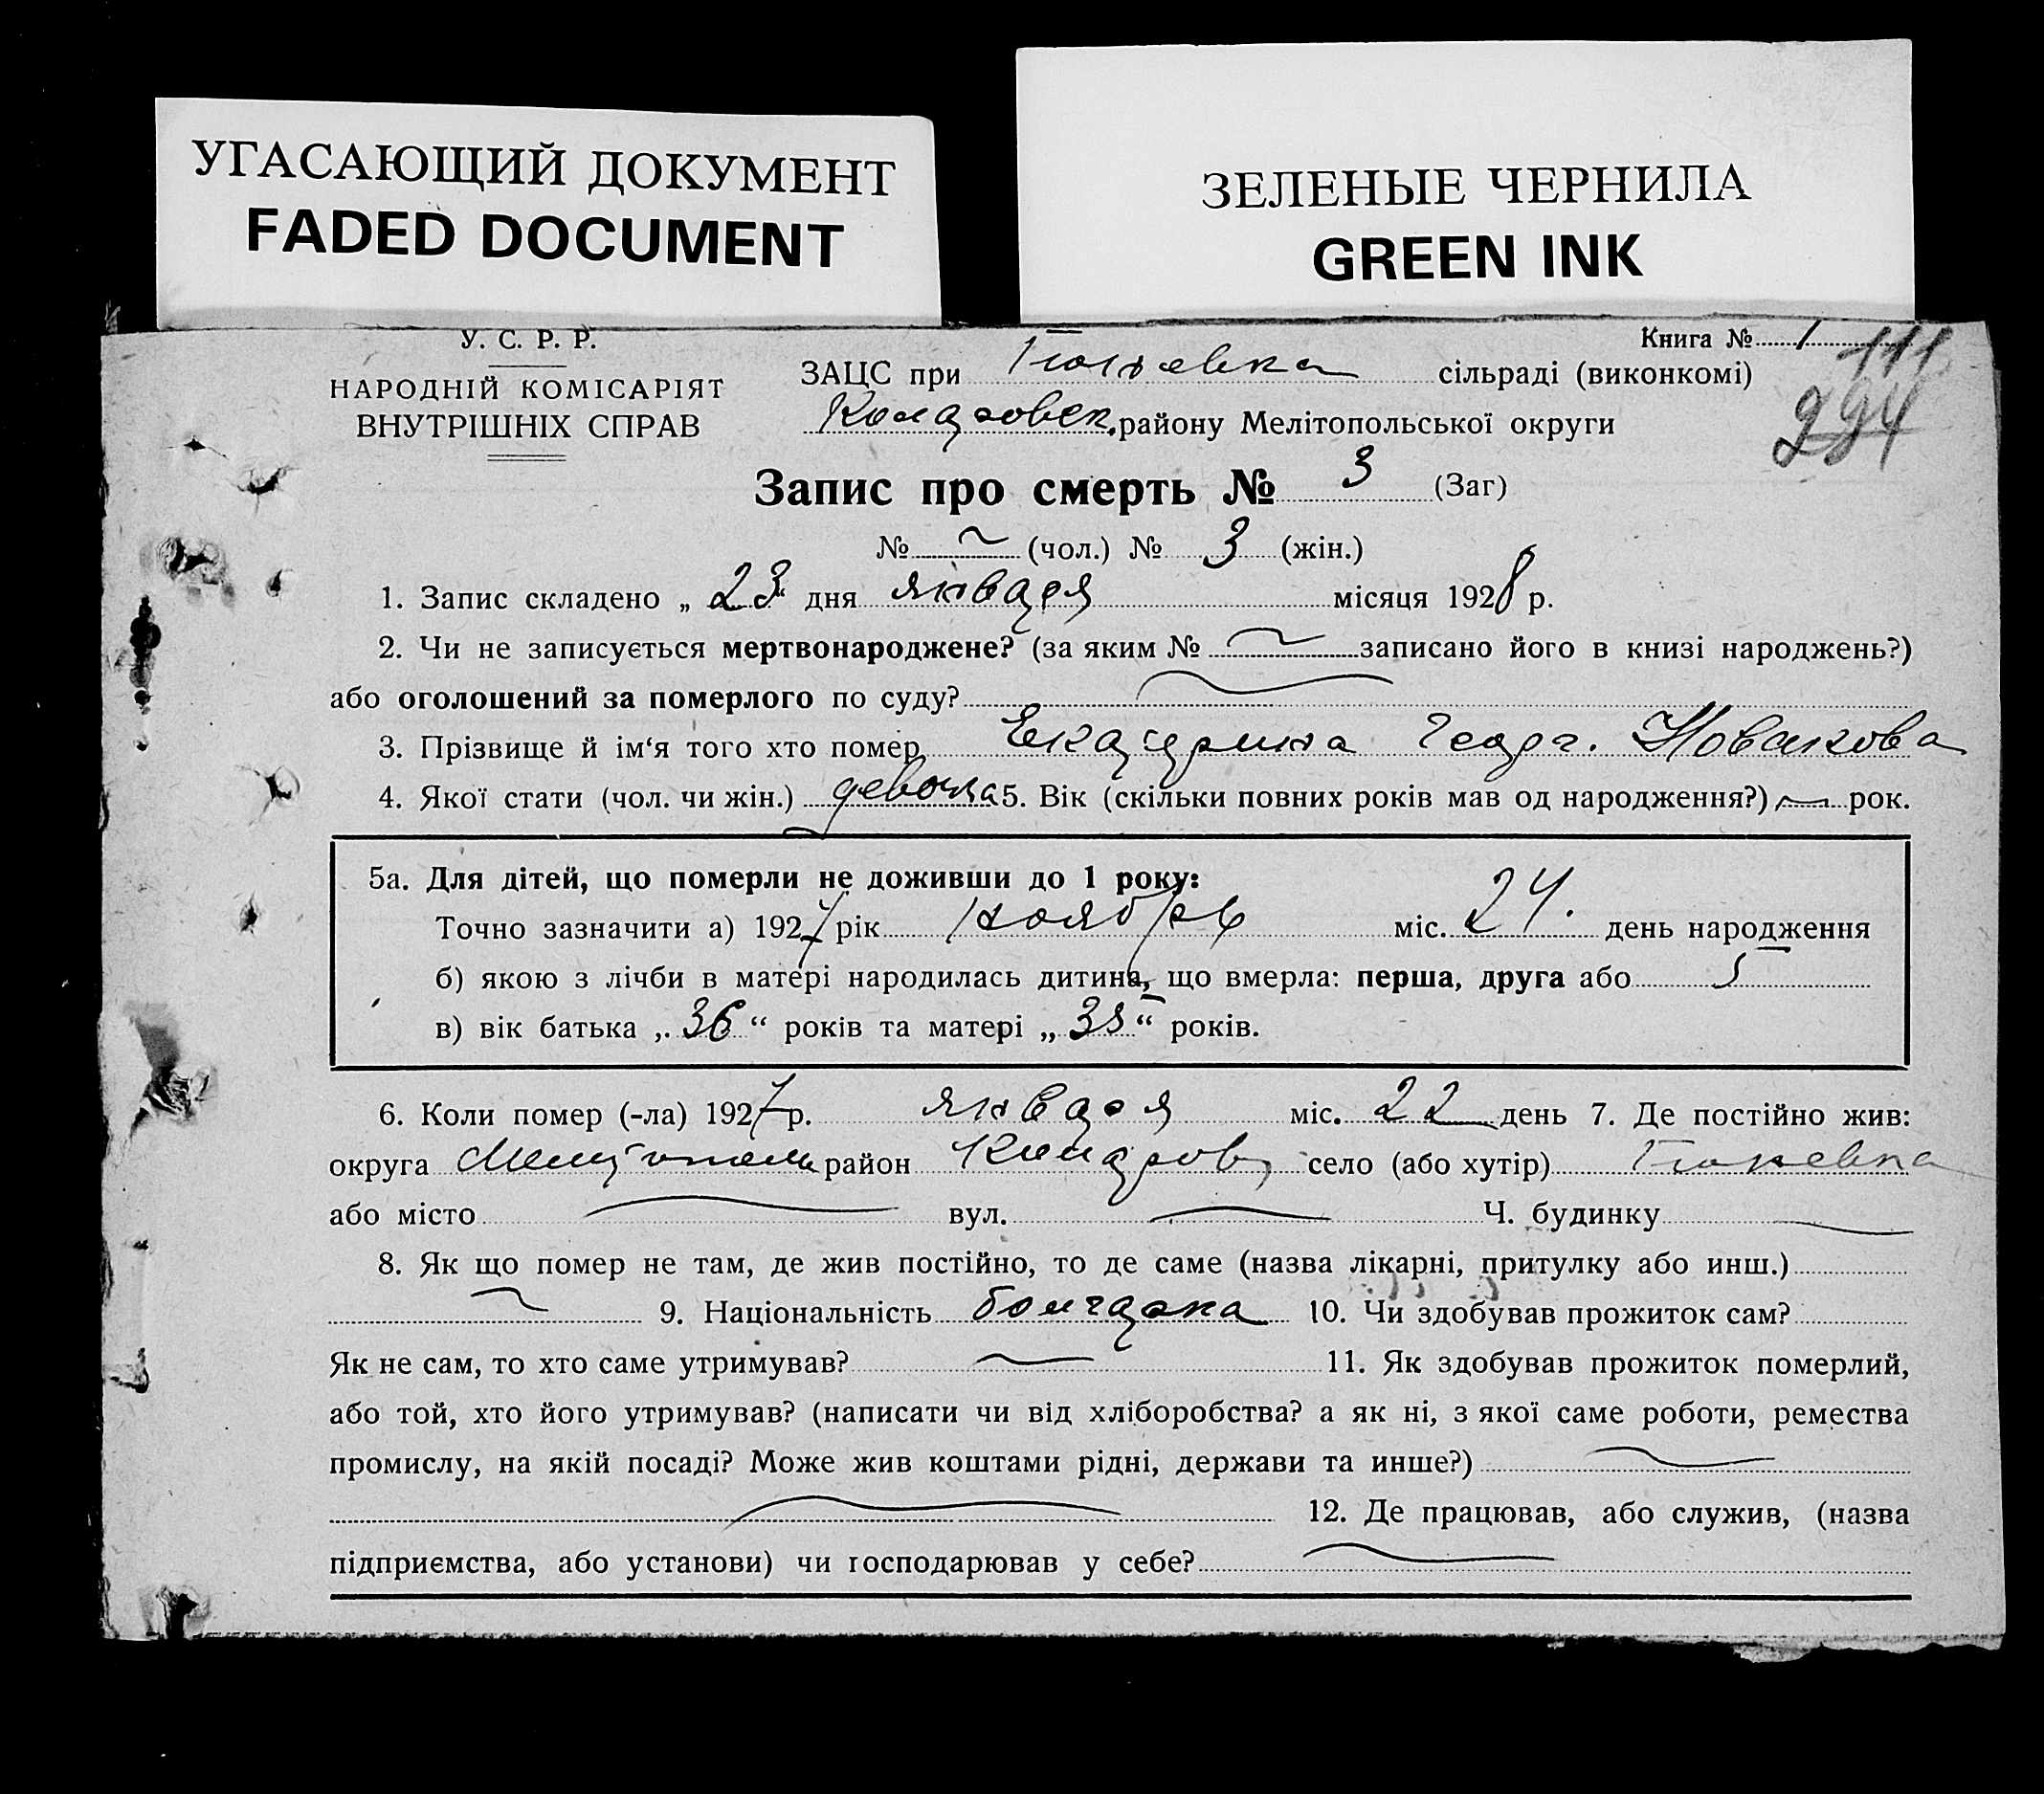 УГАСАЮЩИЙ ДОКУМЕНТ
FADED DOCUMENT
ЗЕЛЕНЫЕ ЧЕРНИЛА
GREEN INK
У. С. Р. Р.
НАРОДНІЙ КОМІСАРІЯТ
ВНУТРІШНІХ СПРАВ
Книга № 1
111
224
ЗАЦС при сільраді (виконкомі)
району Мелітопольської округи
Запис про смерть № 3 (Заг)
№ ~ (чол.) № 3 (жін.)
1. Запис складено „ 23 “ дня января місяця 1928 р.
2. Чи не записується мертвонароджене? (за яким № ~ записано його в книзі народжень?)
або оголошений за померлого по суду? ~
3. Прізвище й ім‘я того хто помер Екатерина Георг. Новакова
4. Якої стати (чол. чи жін.) девочка 5. Вік (скільки повних років мав од народження?) — рок.
5а. Для дітей, що померли не доживши до 1 року:
Точно зазначити а) 1927 рік ноябрь міс. 24. день народження
б) якою з лічби в матері народилась дитина, що вмерла: перша, друга або 5
в) вік батька „ 36 “ років та матері „ 38 “ років.
6. Коли помер (-ла) 1927 р. января міс. 22 день 7. Де постійно жив:
округа район село (або хутір)
або місто — вул. — Ч. будинку —
8. Як що помер не там, де жив постійно, то де саме (назва лікарні, притулку або инш.)
~ 9. Національність болгарка 10. Чи здобував прожиток сам?
Як не сам, то хто саме утримував? ~ 11. Як здобував прожиток померлий,
або той, хто його утримував? (написати чи від хліборобства? а як ні, з якої саме роботи, ремества
промислу, на якій посаді? Може жив коштами рідні, держави та инше?) ~
~ 12. Де працював, або служив, (назва
підприємства, або установи) чи господарював у себе? ~